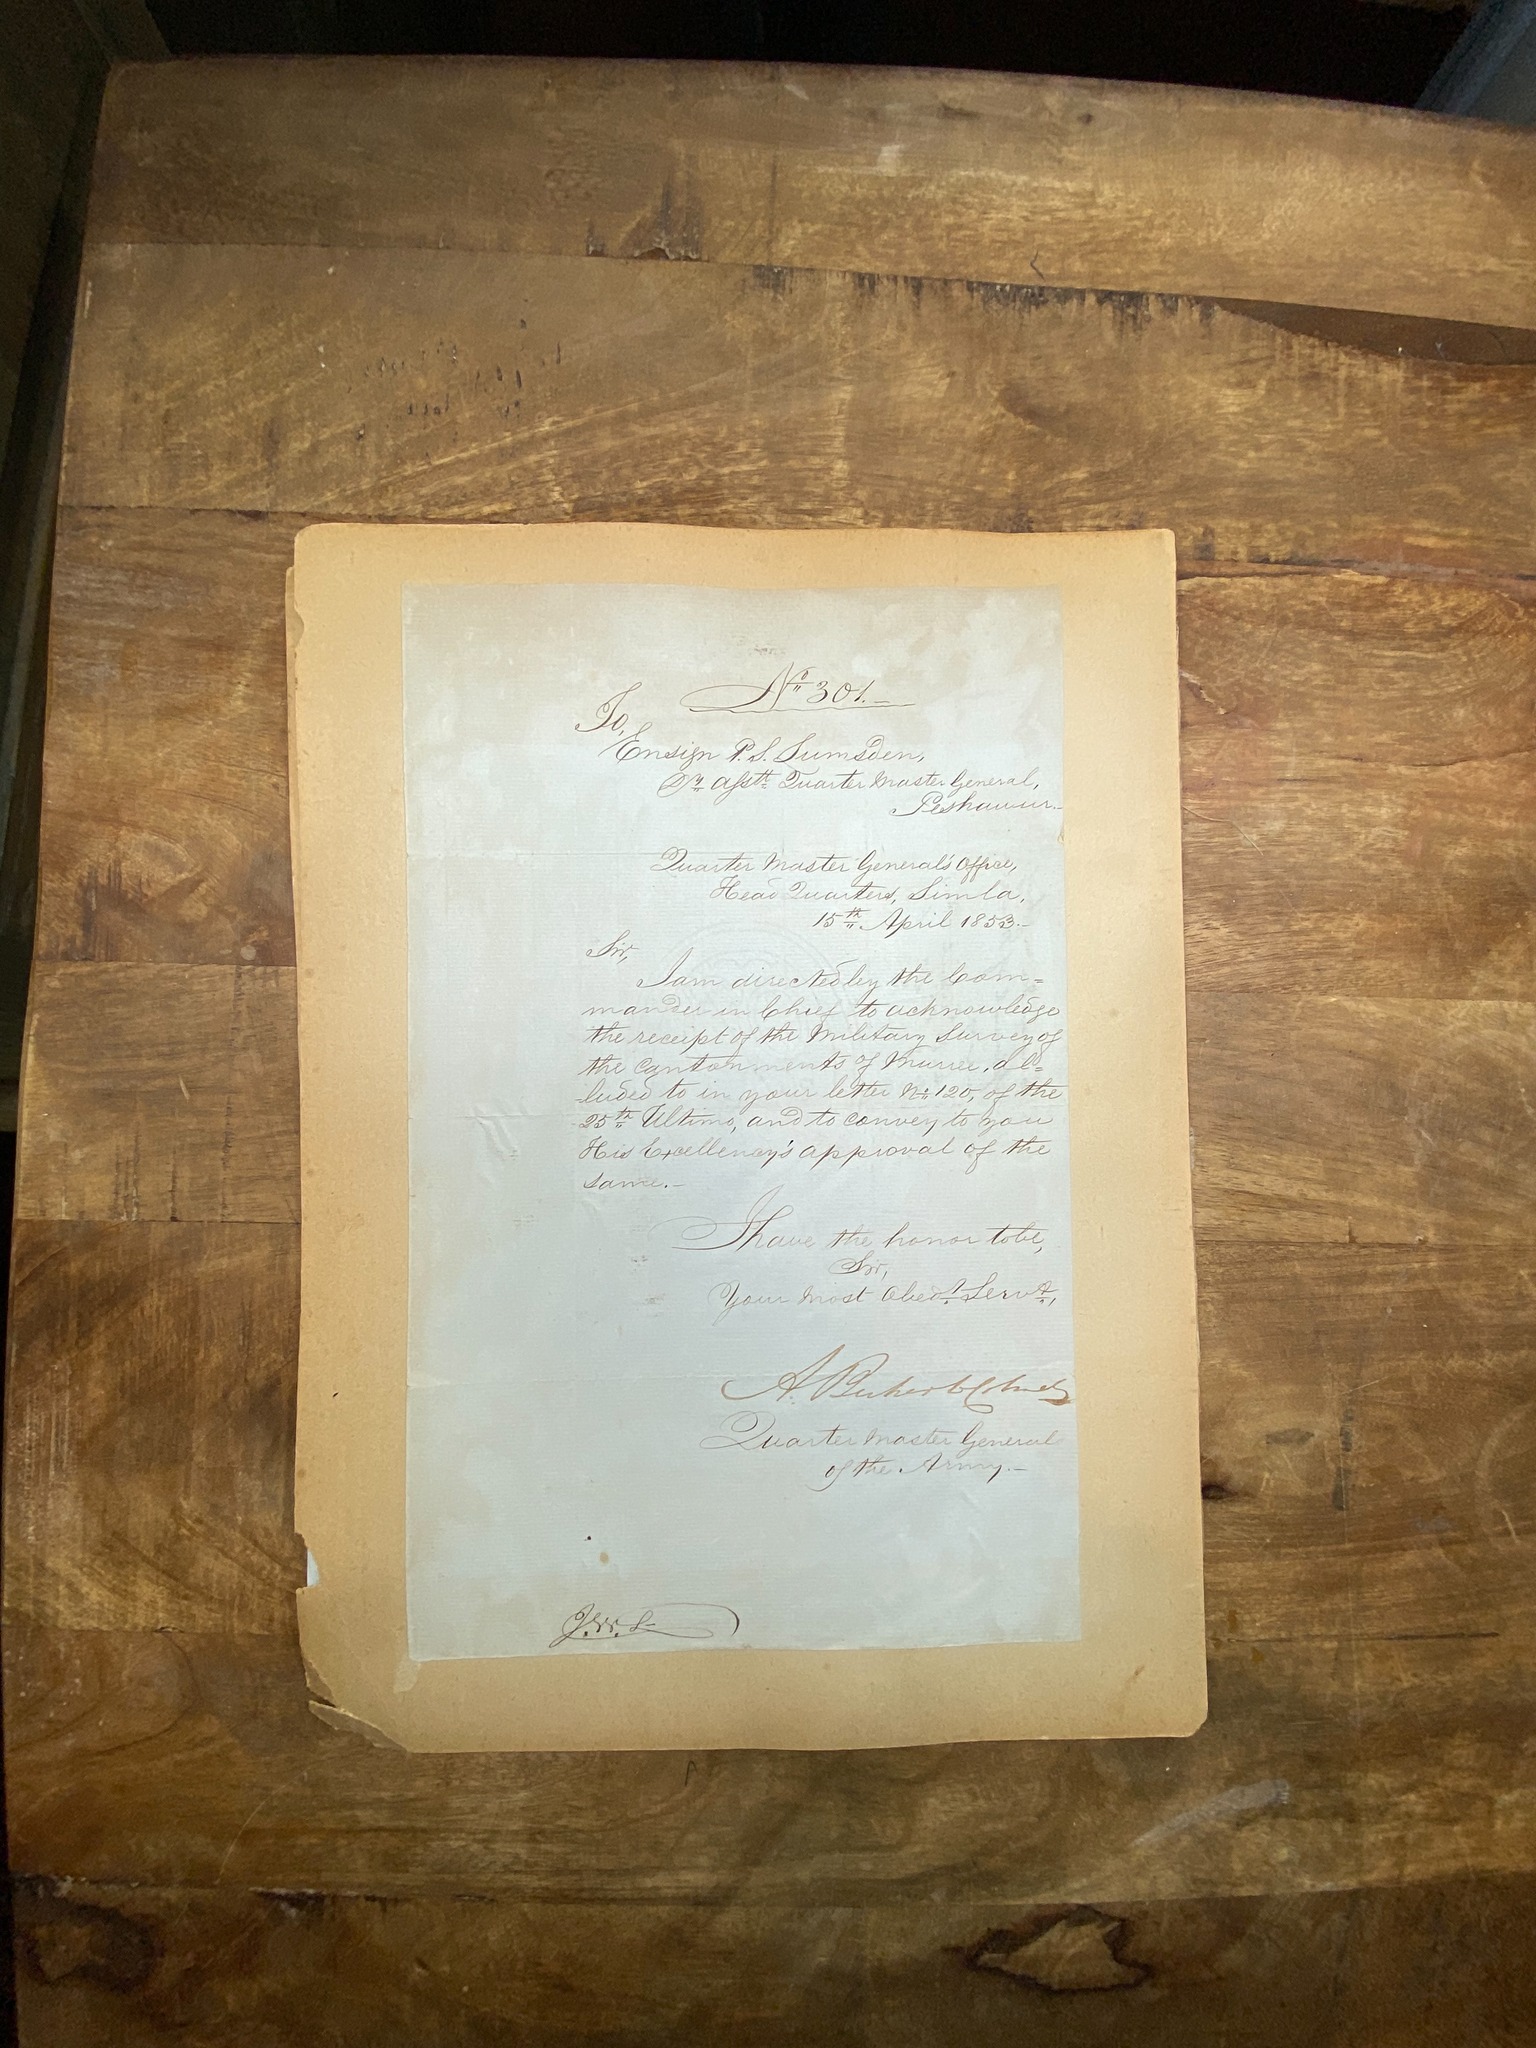 No 301.
To,
Ensign P. S. Lumsden,
Dy. Asstt. Quarter Master General,
Peshawur.
Quarter Master General's Office,
Head Quarters, Simla,
15th April 1853.
Sir,
I am directed by the Com=
mander in Chief to acknowledge
the receipt of the Military Survey of
the Cantonments of Murree, al=
luded to in your letter No. 120, of the
25th Ultimo, and to convey to you
His Excellency's approval of the
same.
I have the honor to be,
Sir,
Your most Obedt. Servt.,
A.
Quarter Master General
of the Army.
J.W.S